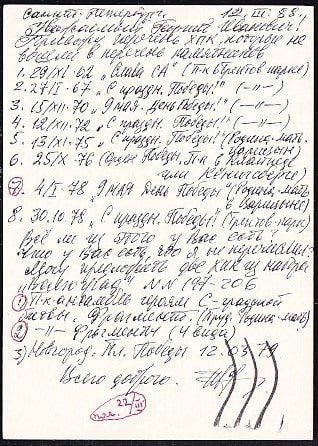 Санкт-Петербург. 12.III.88.
Уважаемый Георгий Иванович!
Привожу перечень ХПК, которые не
вошли в перечень памятников
1. 29/XI-62 „Слава СА" (п-к в Трептов парке)
2. 27/II-67 „С праздн. Победы!" (—"—)
3. 15/VII-70 „9 мая. День Победы!" (—"—)
4. 12/XII-72 „С праздн. Победы!" (—"—)
5. 13/XI-75 „С праздн. Победы!" (Родина-мать.
6. 25/X-76 (Орден Победы, п-к в
или
7. 4/I-78 „9 МАЯ День Победы" (Родина-мать
в
8. 30.10.78 „С праздн. Победы!" (Трептов-парк)
Всё ли из этого у Вас есть?
Что у Вас есть, что я не перечислил?
Могу предложить две ХПК из набора
„Волгоград". NN 197-206
1) П-к-ансамбль героям С-градской
битвы. Фрагменты. (Родина-мать)
2) —"— Фрагменты (4 вида)
3) Новгород. Пл. Победы 12.03.79
Всего доброго.
пол. 22/III